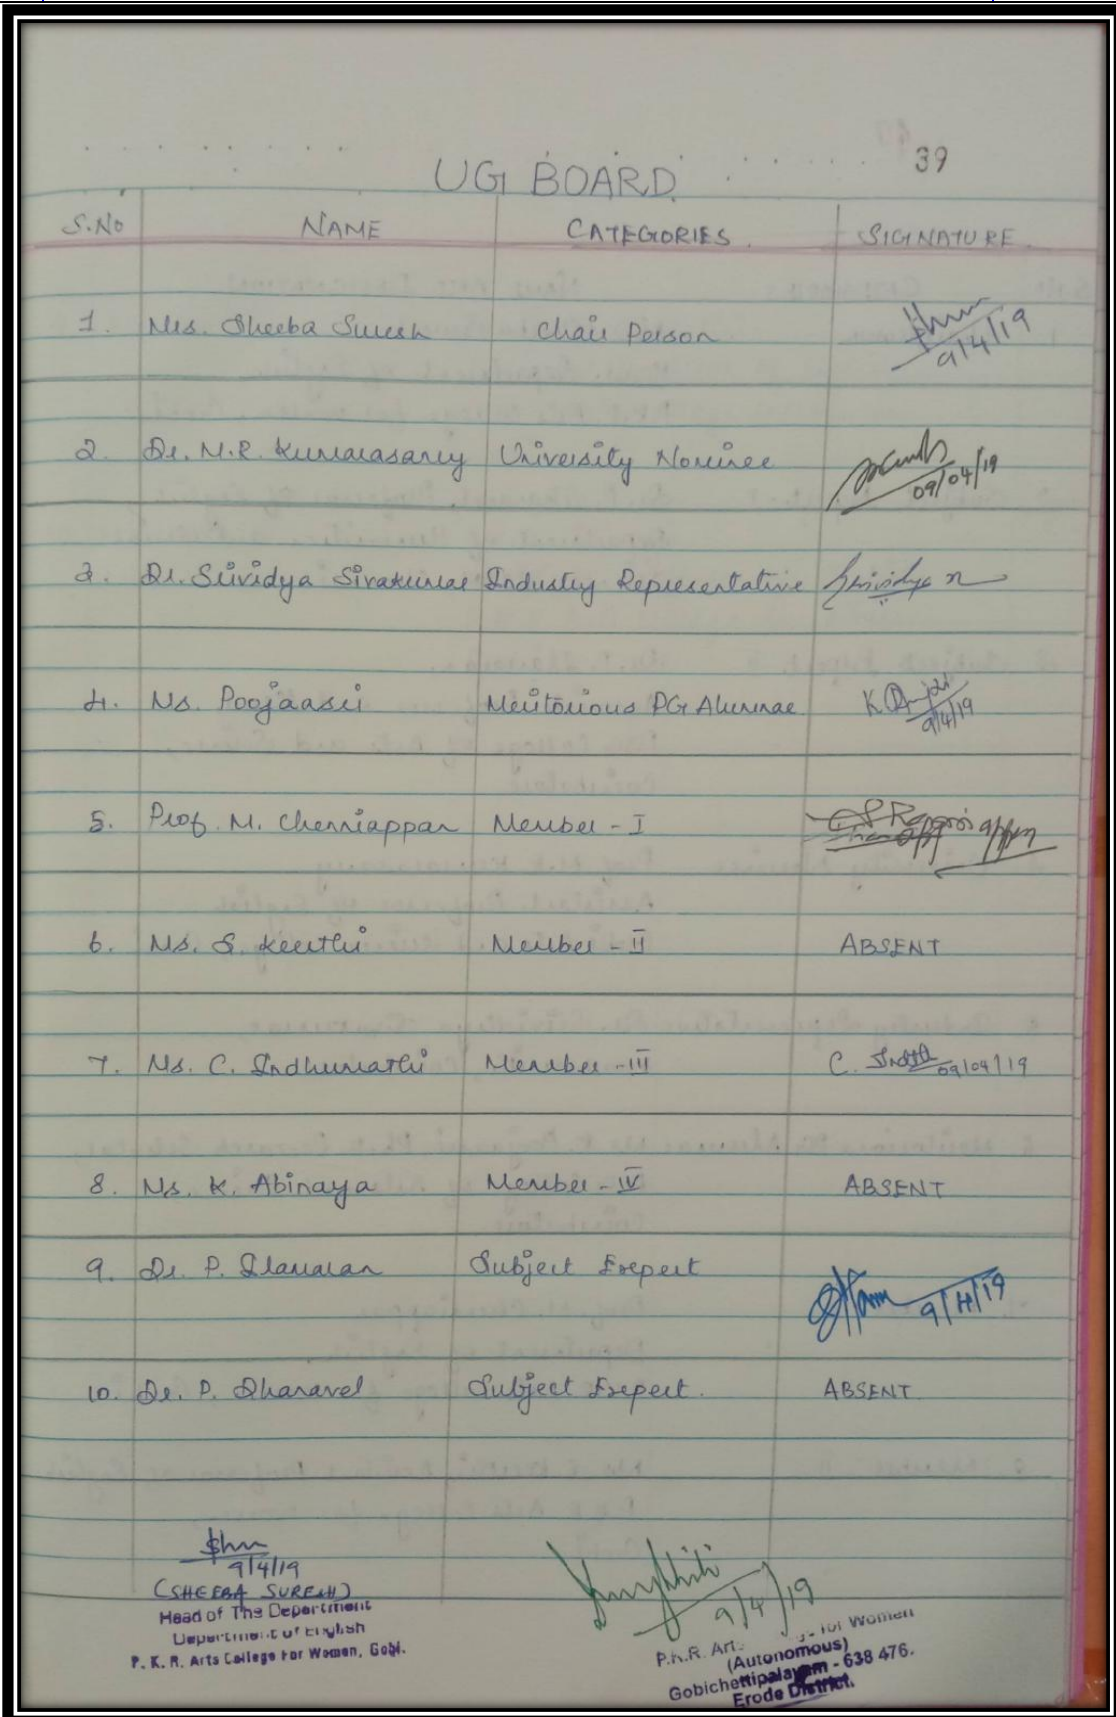 39
UG BOARD
S.No NAME CATEGORIES SIGNATURE
1. Mrs. Sheeba Suresh Chair Person 9/4/19
2. Dr. M.R. Kumarasamy University Nominee 09/04/19
3. Dr. Srividya Sivakumar Industry Representative Srividya
4. Ms. Poojaasri Meritorious PG Alumnae K 9/4/19
5. Prof. M. Chenniappan Member - I
6. Ms. S. Keerthi Member - II ABSENT
7. Ms. C. Indhumathi Member - III C. 09/04/19
8. Ms. K. Abinaya Member - IV ABSENT
9. Dr. P. Ilamaran Subject Expert 9/4/19
10. Dr. P. Dhanavel Subject Expert. ABSENT.
9/4/19
(SHEEBA SURESH)
Head of The Department
Department of English
P. K. R. Arts College For Women, Gobi.
9/4/19
P.K.R. Arts for Women
(Autonomous)
Gobichettipalayam - 638 476.
Erode District.